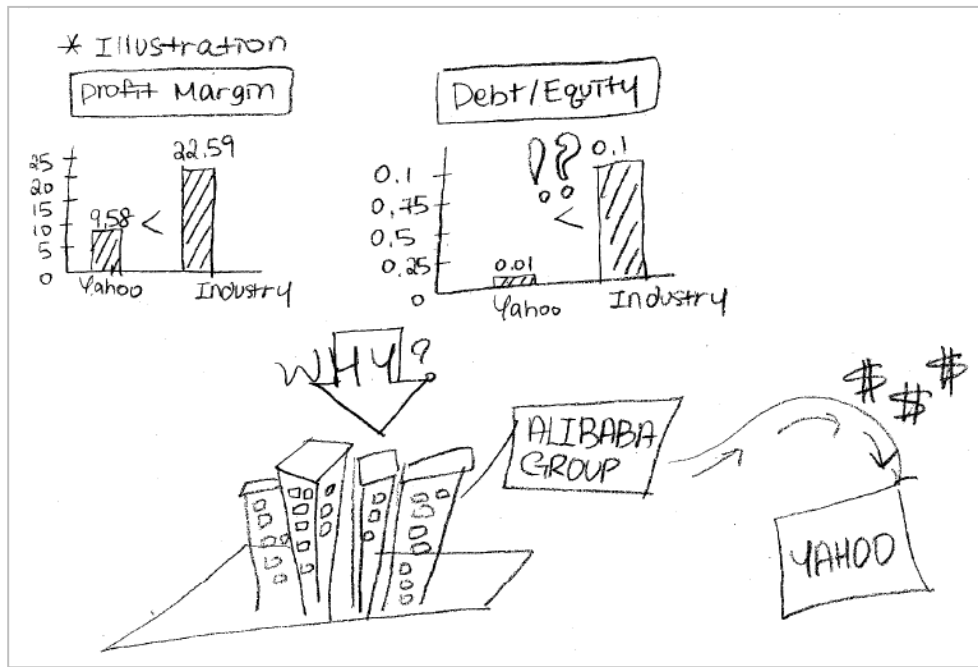 * Illustration
Profit Margin
25
20
15
10
5
0
9.58
<
22.59
Yahoo
Industry
Debt/Equity
0.1
0.75
0.5
0.25
0
0.01
!?
<
0.1
Yahoo
Industry
WHY?
ALIBABA
GROUP
$ $ $
YAHOO